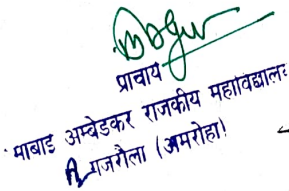 प्राचार्य
माबाइ अम्बेडकर राजकीय महाविद्यालः
गजरौला (अमरोहा)